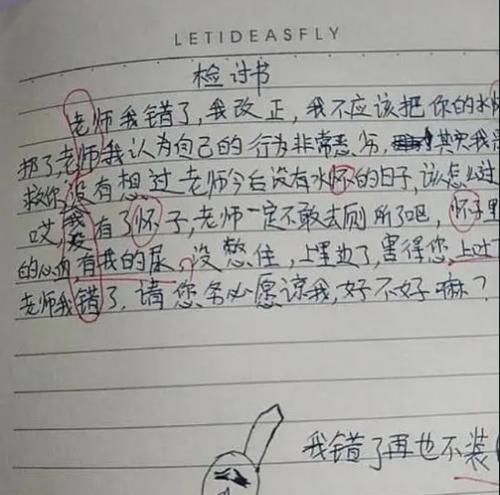 LETIDEASFLY
检讨书
老师我错了,我改正,我不应该把你的水怀
扔了,老师我认为自己的行为非常恶劣,其实我
救你没有想过老师今后没有水怀的日子,该怎么过
哎,我没有了怀子,老师一定不敢去厕所了吧,怀子里
的心血有我的尿,没憋住,上里边了,害得您上吐
老师我错了,请您务必愿谅我,好不好嘛?
我错了再也不装